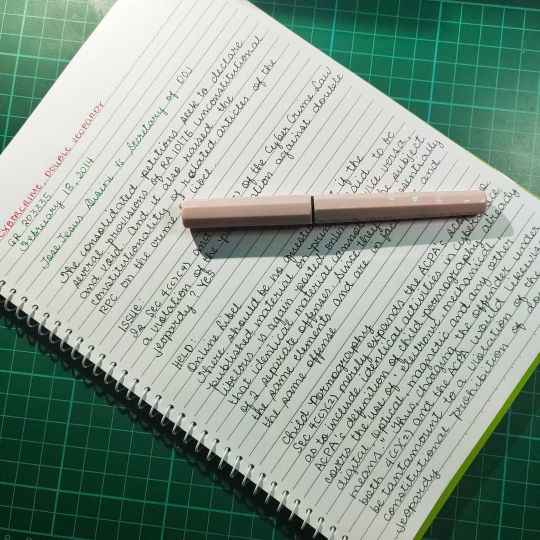 CYBERCRIME, DOUBLE JEOPARDY
GR 203335
February 18, 2014
Jose Jesus Disini vs Secretary of DOJ
The consolidated petitions seek to declare
several provisions of RA 10175 unconstitutional
and void. And it also raised the
constitutionality of related articles of the
RPC on the crime of libel
ISSUE:
Is Sec 4(c)(4) and of the Cyber Crime Law
a violation of the against double
jeopardy? Yes
HELD:
Online Libel
There should be no if the
published material on print said to be
libelous is again posted online vice versa
that identical material cannot be the subject
of 2 separate offenses. Since they essentially
the same elements and are in and
the same offense
Child Pornography
Sec 4(c)(2) merely expands the ACPA's
as to include identical activities in
ACPA's definition of child pornography already
covers the use of "electronic, mechanical,
digital, optical, magnetic and any other
means." Thus, charging the offender under
both 4(c)(2) and the ACPA would likewise
be tantamount to a violation of the
constitutional prohibition of
jeopardy